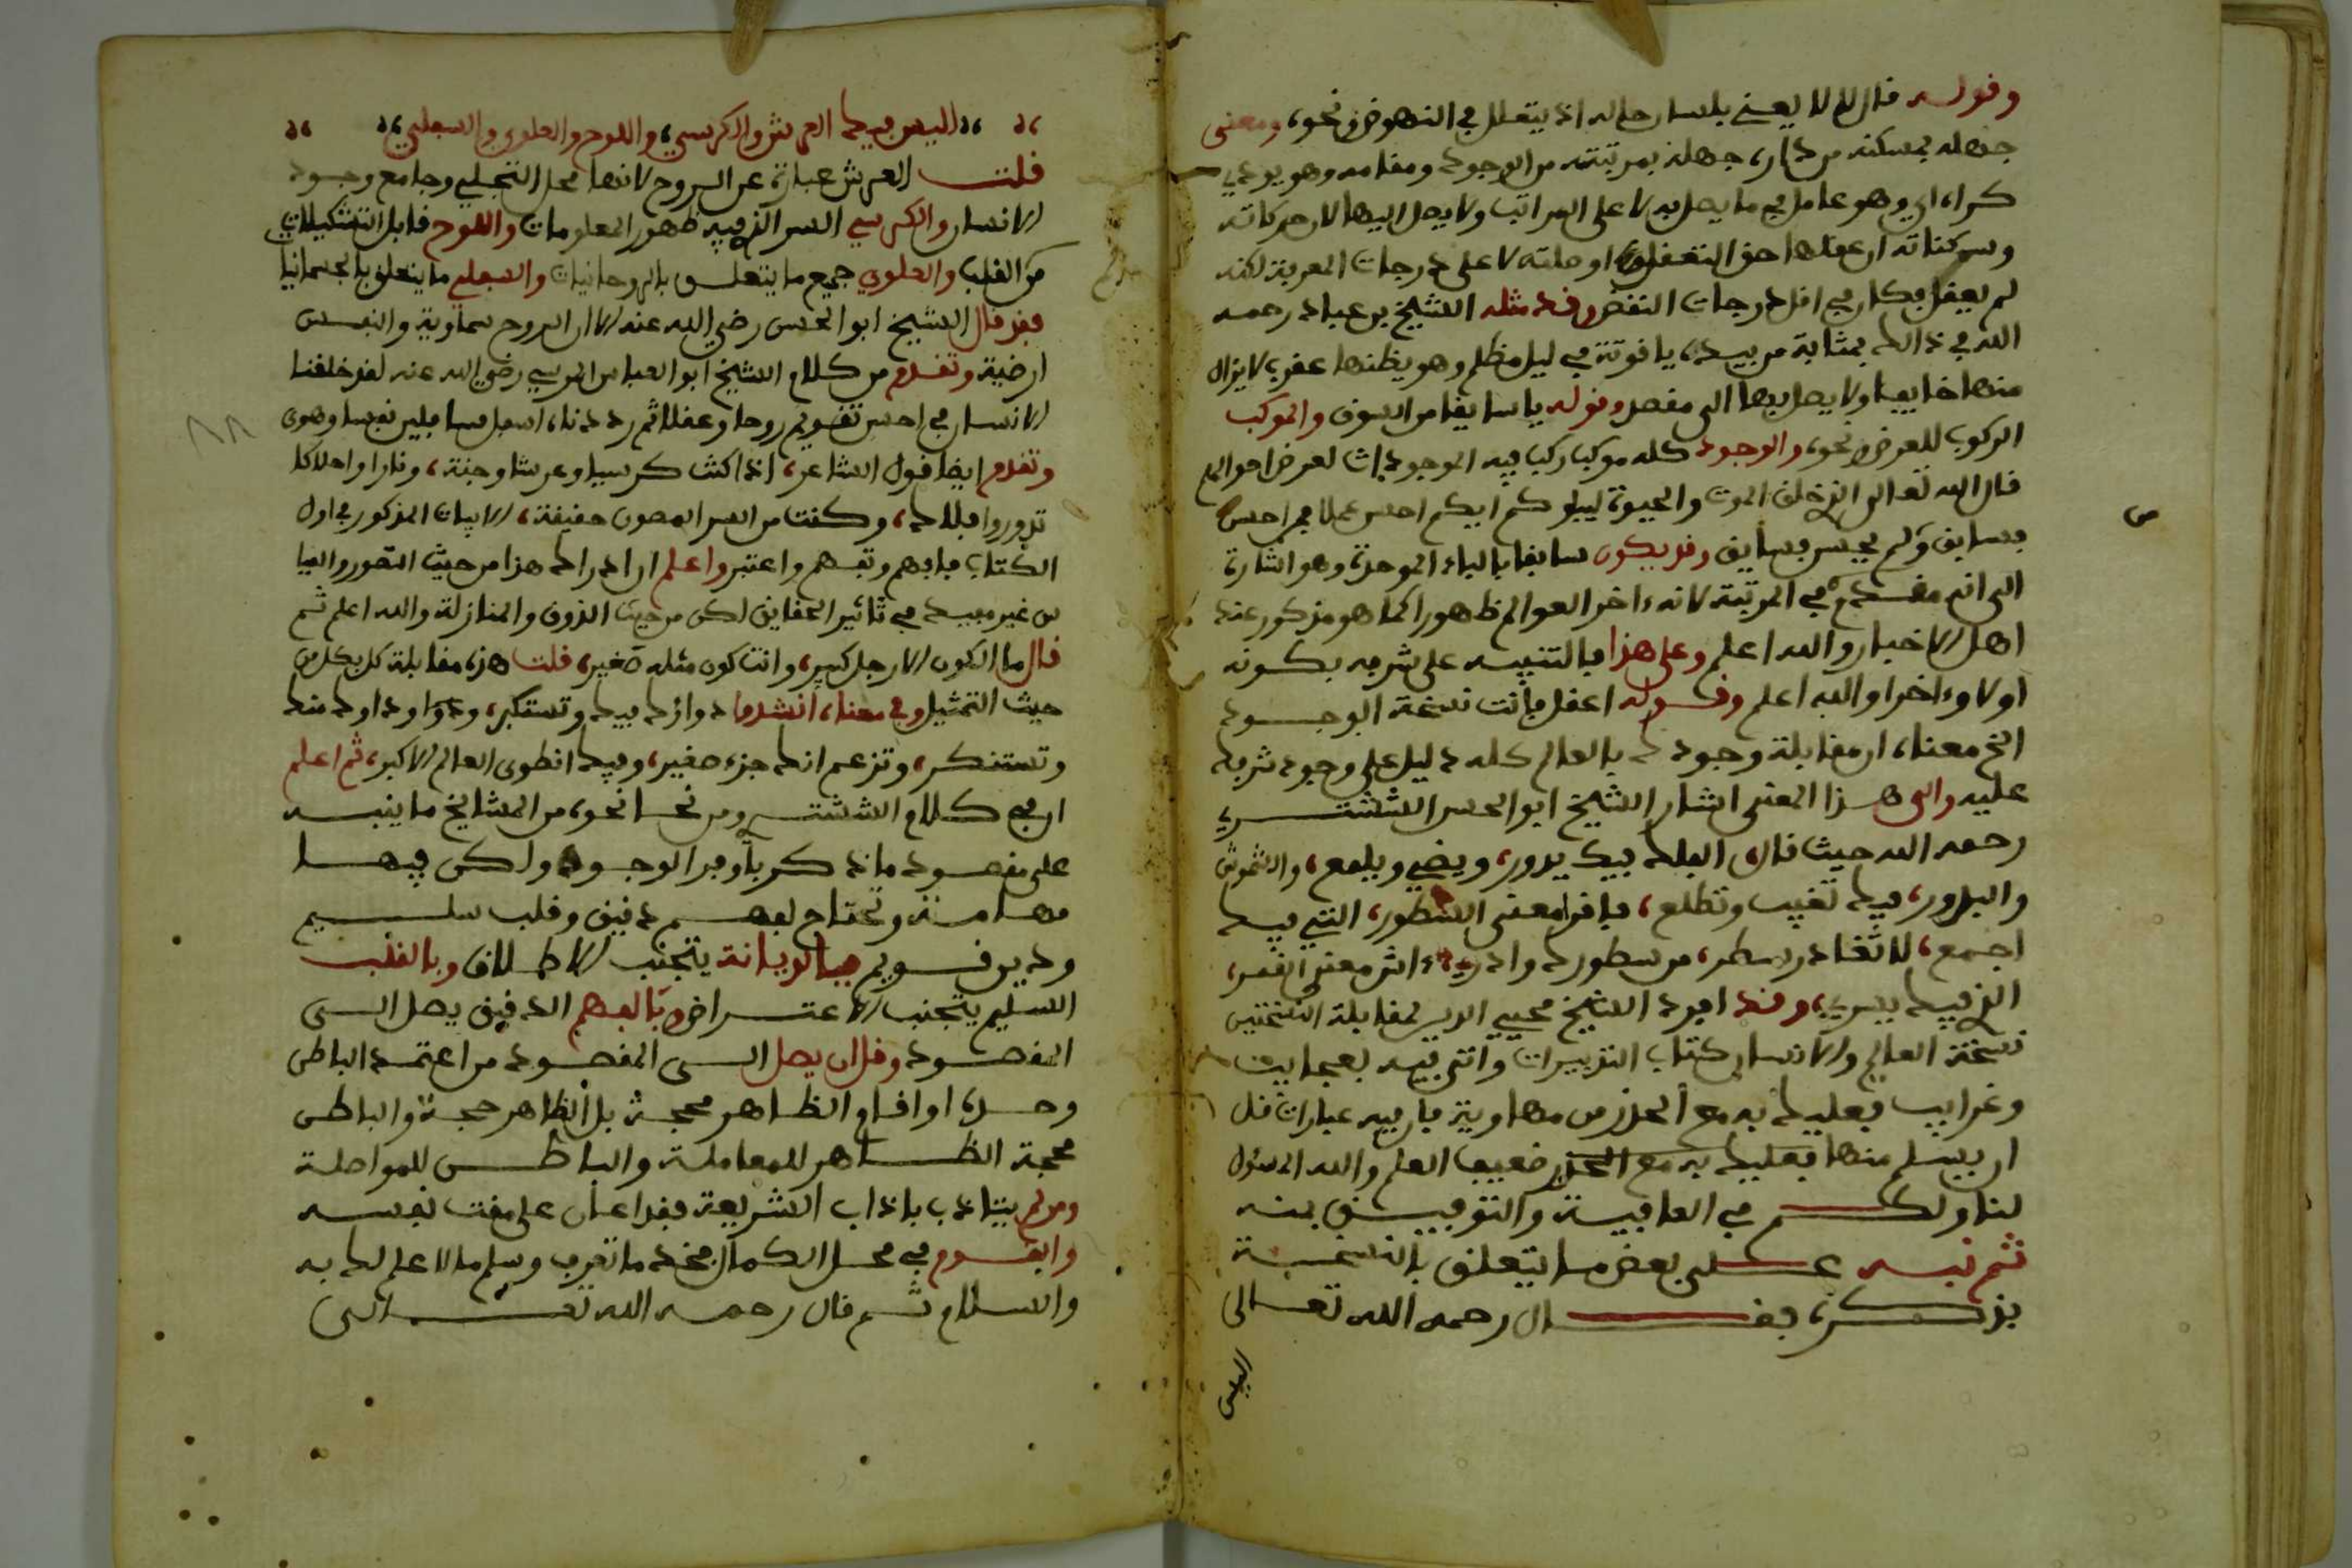 وقوله قال لا لا يعني بلسان حاله اذ يتعلل في النهوض ونحوه ومعنى
جهله بمسكنه من دار جهله بمرتبته من الوجود ومقامه وهو يودي
كراه اي وهو عامل في ما يصل به لاعلى المراتب ولا يصل اليها الا من حركاته
وسكناته ان عقلها حق التعقل اوصلته لاعلى درجات المعرفة لكنه
لم يعقل فكان في اقل درجات النقض وقد مثله الشيخ بن عباد رحمه
الله في ذالك بمثابة من بيده ياقوتة في ليل مظلم وهو يظنها عقرب لا يزال
منها خايفا ولا يصل بها الى مقصد وقوله يا سايقا من السوق والموكب
الركوب للعرض ونحوه والوجود كله موكبا ركبا فيه الموجودات لعرض احوالهم
قال الله تعالى الذي خلق الموت والحيوة ليبلوكم ايكم احسن عملا فمن احسن
فسابق ولم يحسن فسايق وقد يكون سابقا بالباء الموحدة وهو اشارة
الى انه مقدم في المرتبة لانه ءاخر العوالم ظهورا كما هو مذكور عند
اهل الاخبار والله اعلم وعلى هذا فالتنبيه على شرفه بكونه
اولا وءاخرا والله اعلم وقوله اعقل فانت نسخة الوجود
الخ معناه ان مقابلة وجودك بالعالم كله دليل على وجود شرفك
عليه والى هذا المعنى اشار الشيخ ابو الحسن الششتري
رحمه الله حيث قال الفلك فيك يدور ويضيء ويلمع والشموس
والبدور فيك تغيب وتطلع فاقرا معنى السطور التي فيك
اجمع لا تغادر سطر من سطورك وادر اش معنى القمر
الذي فيك يسري وقد افرد الشيخ محيي الدين لمقابلة النسختين
نسخة العالم والانسان كتاب التدبيرات واتى فيه بعجايب
وغرايب فعليك به مع الحذر من مهاويه فان فيه عبارات قل
ان يسلم منها فعليك به مع الحذر ضعيف العلم والله المسئول
لنا ولكم في العافية والتوفيق بمنه
ثم نبه على بعض ما يتعلق بالنسخة
بذكره فقال رحمه الله تعالى
اليس
اليس فيك العرش والكرسي واللوح والعلوي والسفلي
قلت العرش عبارة عن الروح لانها محل التجلي وجامع وجود
الانسان والكرسي السر الذي فيه ظهور المعلومات واللوح قابل التشكيلات
من القلب والعلوي جميع ما يتعلق بالروحانيات والسفلي ما يتعلق بالجسمانيا
فقد قال الشيخ ابو الحسن رضي الله عنه الا ان الروح سماوية والنفس
ارضية وتقدم من كلام الشيخ ابو العباس المرسي رضي الله عنه لقد خلقنا
الانسان في احسن تقويم روحا وعقلا ثم رددناه اسفل سافلين نفسا وهوى
وتقدم ايضا قول الشاعر اذا كنت كرسيا وعرشا وجنة ونارا وافلاكا
تدور وافلاك وكنت من السر المصون حقيقة الابيات المذكور في اول
الكتاب فافهم وتفهم واعتبر واعلم ان ادراك هذا من حيث التصور والقيا
س غير مفيد في تاثير الحقايق لكن من حيث الذوق والمنازلة والله اعلم ثم
قال ما الكون الا رجل كبير وانت كون مثله صغير قلت هذه مقابلة كل بكل من
حيث التمثيل وفي معناه انشدوا دواؤك فيك وتستكبر وداؤك منك
وتستنكر وتزعم انك جزء صغير وفيك انطوى العالم الاكبر ثم اعلم
ان في كلام الششتري ومن نحا نحوه من المشايخ ما ينبه
على مقصود ما ذكر باوفر الوجود ولكن فيها
مهامة وتحتاج لفهم دقيق وقلب سليم
ودين قويم فبالديانة يتجنب الاطلاق وبالقلب
السليم يتجنب الاعتراض وبالفهم الدقيق يصل الى
المقصود وقل ان يصل الى المقصود من اعتمد الباطن
وحده او اقام الظاهر محجة بل الظاهر حجة والباطن
محجة الظاهر للمعاملة والباطن للمواصلة
ومن لم يتادب باداب الشريعة فقد اعان على مقت نفسه
والقوم في محل الكمال فخذ ما تعرف وسلم ما لا علم لك به
والسلام ثم قال رحمه الله تعالى